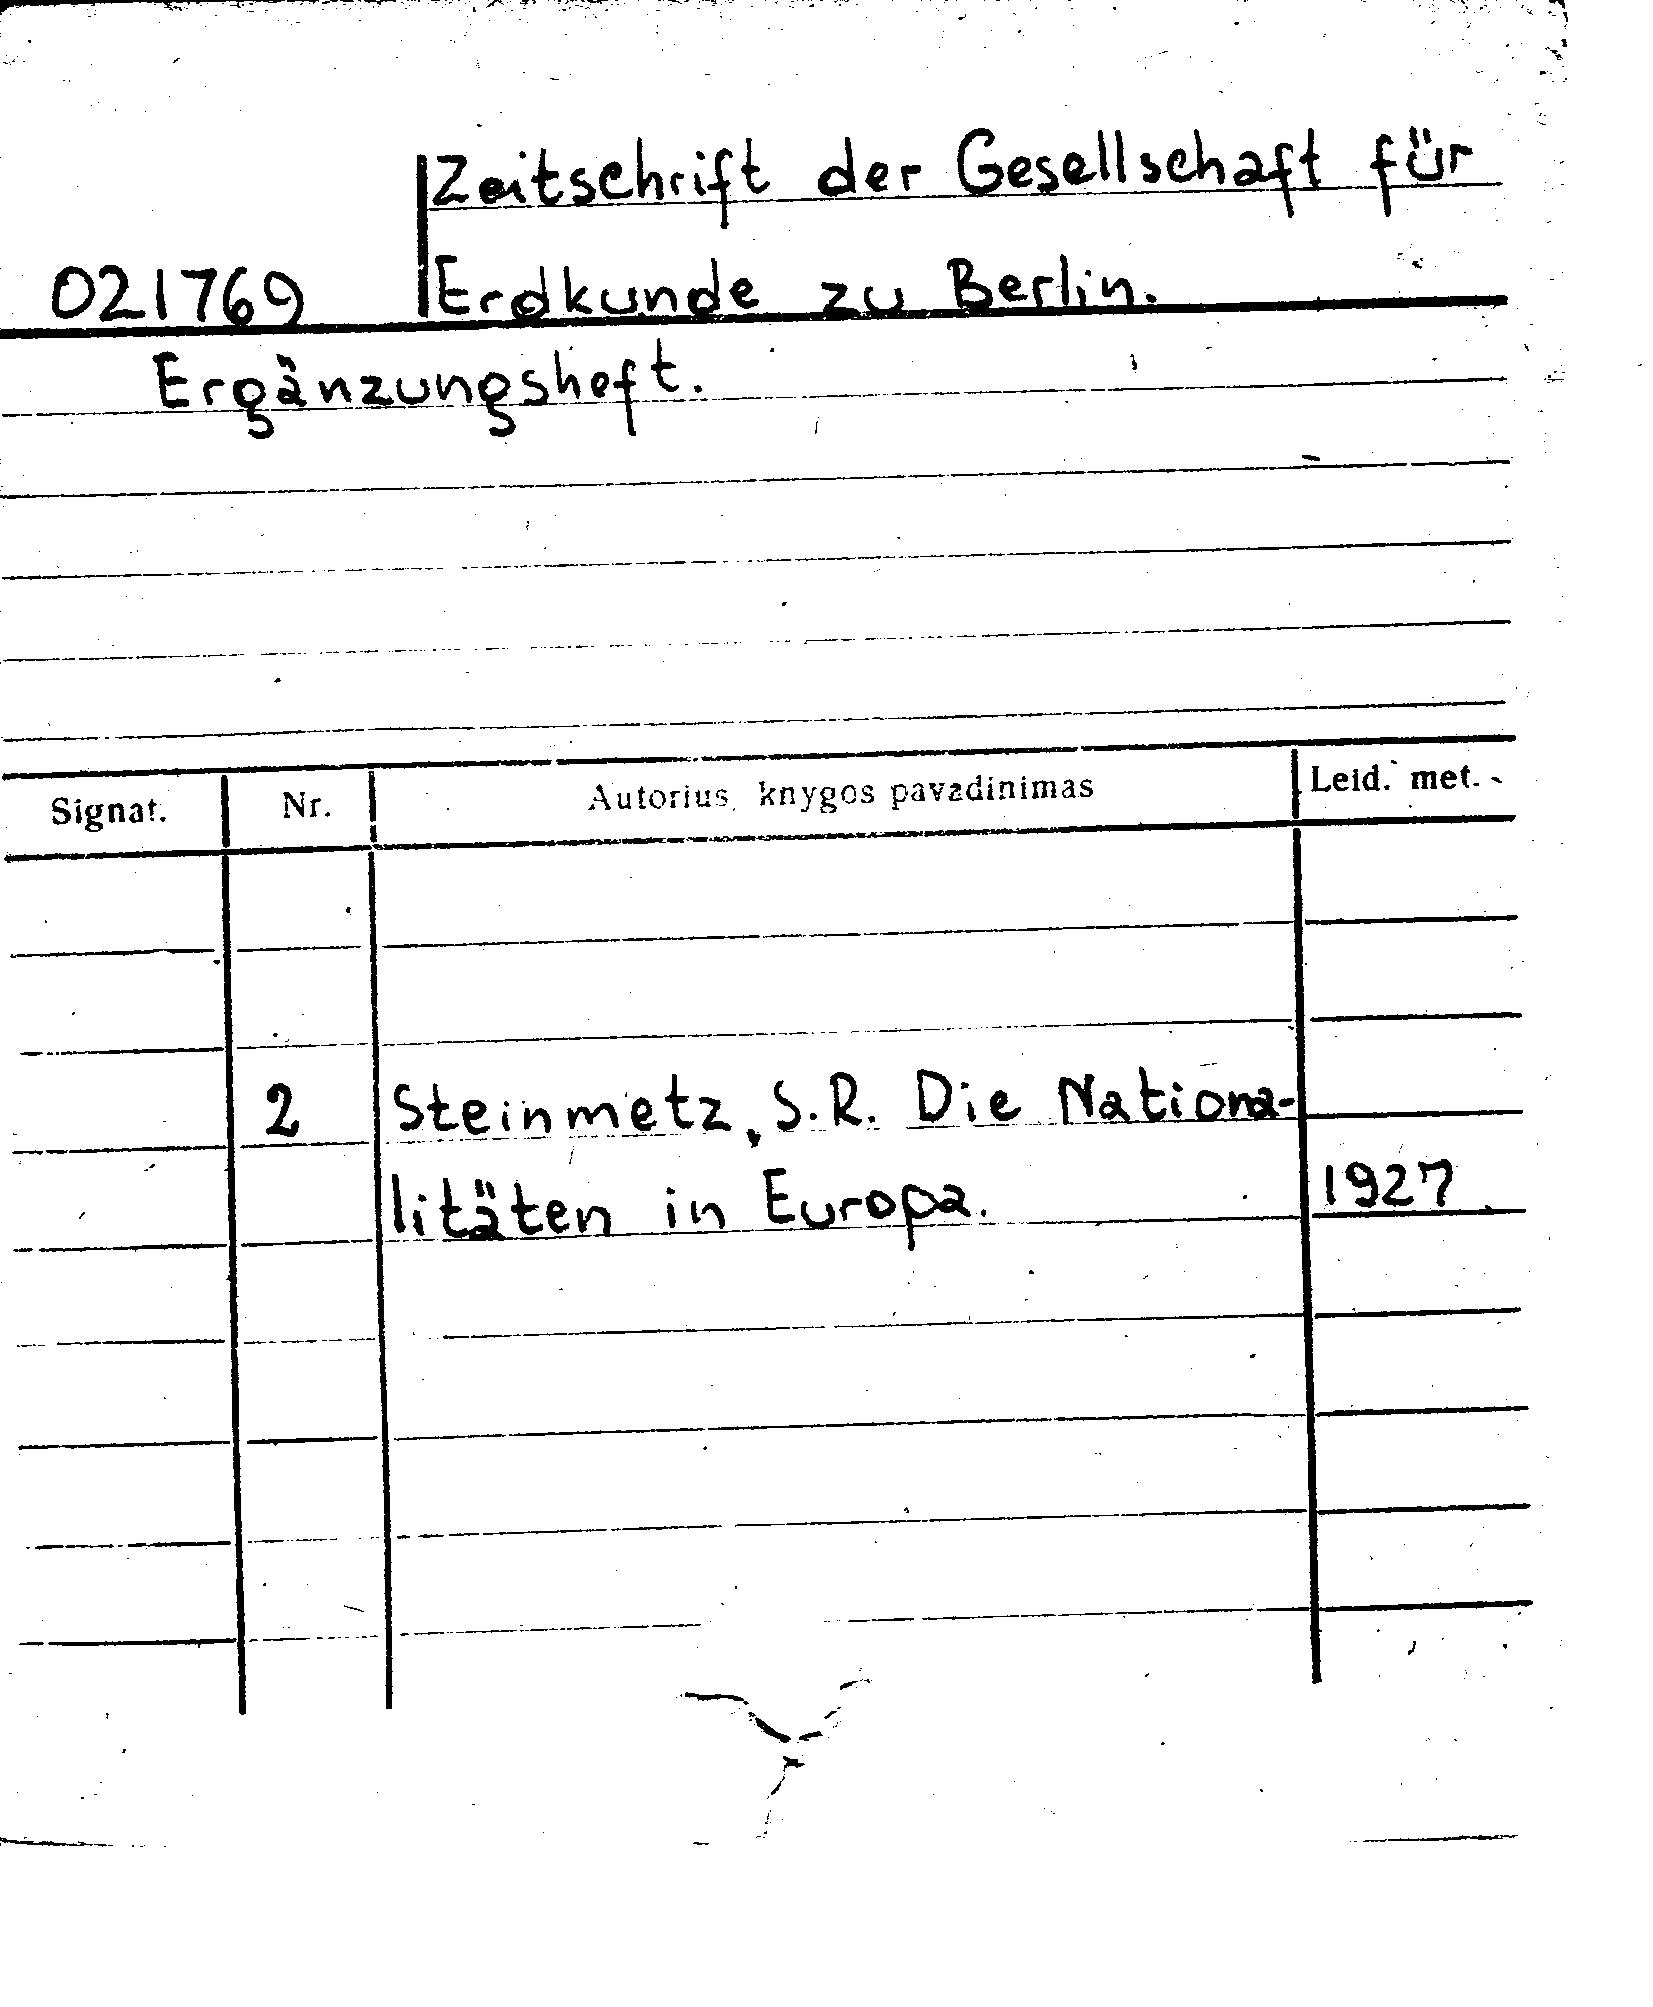 Zeitschrift der Gesellschaft für
021769 Erdkunde zu Berlin.
Ergänzungsheft.
Signat. Nr. Autorius, knygos pavadinimas Leid. met.
2 Steinmetz, S.R. Die Nationa-
litäten in Europa. 1927